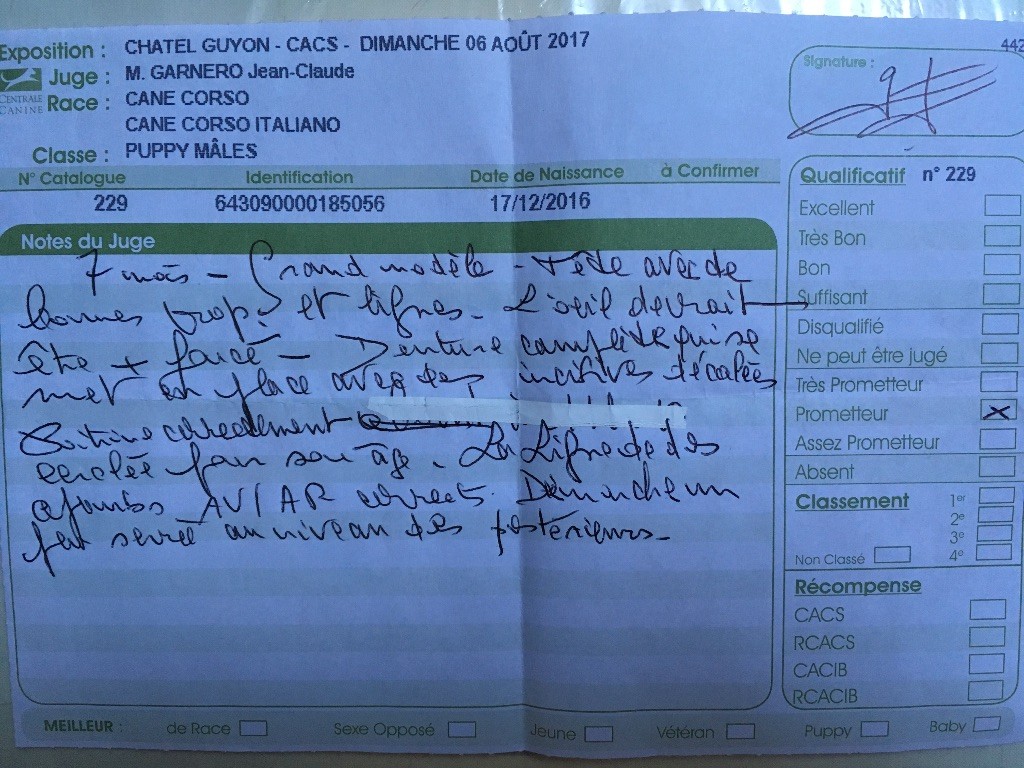 Exposition : CHATEL GUYON - CACS - DIMANCHE 06 AOÛT 2017
442
Juge : M. GARNERO Jean-Claude
CENTRALE CANINE
Race : CANE CORSO
CANE CORSO ITALIANO
Classe : PUPPY MÂLES
Signature :
N° Catalogue Identification Date de Naissance à Confirmer
229 643090000185056 17/12/2016
Notes du Juge
7 mois - Grand modèle - Tête avec de
bonnes prop. et lignes - L'oeil devrait
être + foncé - Denture complète qui se
met en place avec des incisives décalées
Poitrine correctement
cerclée pour son âge. La Ligne de dos
AV/AR corrects. Démarche un
peu serré au niveau des postérieurs -
Qualificatif n° 229
Excellent
Très Bon
Bon
Suffisant
Disqualifié
Ne peut être jugé
Très Prometteur
Prometteur X
Assez Prometteur
Absent
Classement 1er
2e
3e
Non Classé 4e
Récompense
CACS
RCACS
CACIB
RCACIB
MEILLEUR : de Race Sexe Opposé Jeune Vétéran Puppy Baby